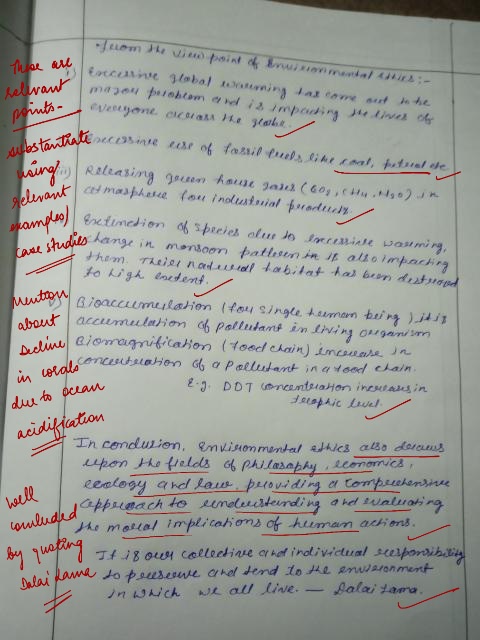 • from the view point of Environmental ethics:-
i) Excessive global warming has come out to be
major problem and is impacting the lives of
everyone across the globe.
Excessive use of fossil fuels like coal, petrol etc
iii) Releasing green house gases (CO2, CH4, N2O) in
atmosphere for industrial products.
Extinction of species due to excessive warming,
change in monsoon pattern it is also impacting
them. Their natural habitat has been destroyed
to high extent.
v) Bioaccumulation (for single human being), it is
accumulation of pollutant in living organism
Biomagnification (food chain) increase in
concentration of a pollutant in a food chain.
E.g. DDT concentration increases in
trophic level.
In conclusion, Environmental ethics also draws
upon the fields of philosophy, economics,
ecology and law, providing a comprehensive
approach to understanding and evaluating
the moral implications of human actions.
It is our collective and individual responsibility
to preserve and tend to the environment
in which we all live. — Dalai Lama.
These are
relevant
points-
substantiate
using
relevant
examples/
case studies
Mention
about
decline
in corals
due to ocean
acidification
Well
concluded
by quoting
Dalai Lama